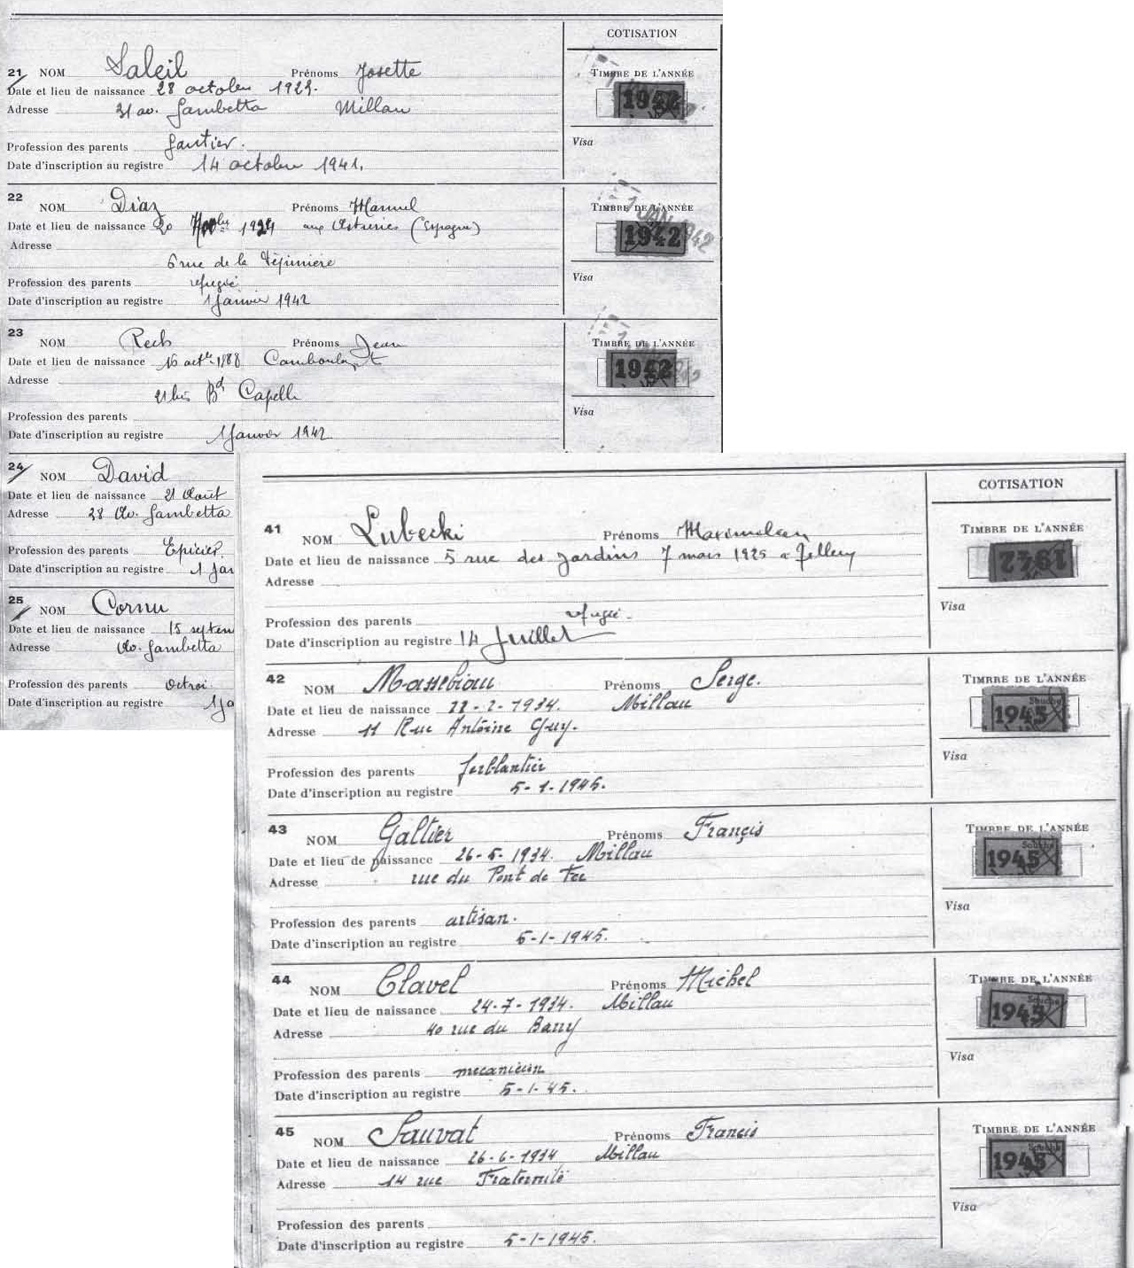 COTISATION
21 NOM Saleil Prénoms Josette
Date et lieu de naissance 28 octobre 1923.
Adresse 31 av. Gambetta Millau
Profession des parents Gantier.
Date d'inscription au registre 14 octobre 1941.
TIMBRE DE L'ANNÉE
1942
Visa
22 NOM Diaz Prénoms Manuel
Date et lieu de naissance 20 1924 aux Asturies (Espagne)
Adresse
6 rue de la Pépinière
Profession des parents refugié
Date d'inscription au registre 1 Janvier 1942
TIMBRE DE L'ANNÉE
1 JAN 1942
1942
Visa
23 NOM Rech Prénoms Jean
Date et lieu de naissance 16 octbre 1888
Adresse
21 bis Bd Capelle
Profession des parents
Date d'inscription au registre 1 Janvier 1942
TIMBRE DE L'ANNÉE
1942
Visa
24 NOM David
Date et lieu de naissance 21 Août
Adresse 28 Av. Gambetta
Profession des parents Epicier
Date d'inscription au registre 1 Jan
25 NOM Cornu
Date et lieu de naissance 15 septem
Adresse Av. Gambetta
Profession des parents Octroi
Date d'inscription au registre 1 Ja
COTISATION
41 NOM Lubecki Prénoms
Date et lieu de naissance 5 rue des Jardins 7 mars 1925 a
Adresse
Profession des parents refugié.
Date d'inscription au registre 14 Juillet
TIMBRE DE L'ANNÉE
1942
Visa
42 NOM Massebiau Prénoms Serge.
Date et lieu de naissance 22-2-1934. Millau
Adresse 11 Rue Antoine Guy.
Profession des parents ferblantier
Date d'inscription au registre 5-1-1945.
TIMBRE DE L'ANNÉE
Souche
1945
Visa
43 NOM Galtier Prénoms Françis
Date et lieu de naissance 26-5-1934. Millau
Adresse rue du Pont de Fer
Profession des parents artisan.
Date d'inscription au registre 5-1-1945.
TIMBRE DE L'ANNÉE
Souche
1945
Visa
44 NOM Clavel Prénoms Michel
Date et lieu de naissance 24-7-1934. Millau
Adresse 40 rue du Barry
Profession des parents mecanicien
Date d'inscription au registre 5-1-45.
TIMBRE DE L'ANNÉE
Souche
1945
Visa
45 NOM Sauvat Prénoms Francis
Date et lieu de naissance 26-6-1934 Millau
Adresse 14 rue Fraternité
Profession des parents
Date d'inscription au registre 5-1-1945.
TIMBRE DE L'ANNÉE
Souche
1945
Visa